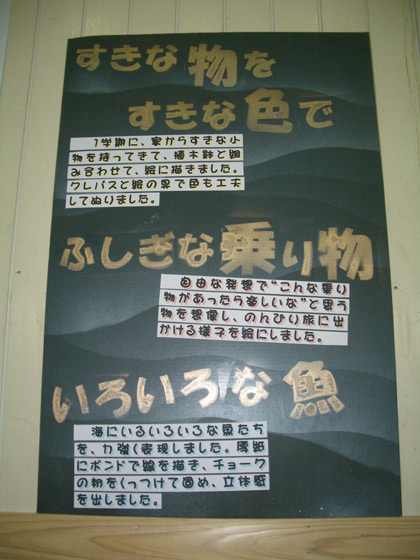 すきな物を
すきな色で
1学期に、家からすきな小
物を持ってきて、植木鉢と組
み合わせて、絵に描きました。
クレパスと絵の具で色も工夫
してぬりました。
ふしぎな乗り物
自由な発想で“こんな乗り
物があったら楽しいな”と思う
物を想像し、のんびり旅に出
かける様子を絵にしました。
いろいろな魚
海にいるいろいろな魚たち
を、力強く表現しました。厚紙
にボンドで線を描き、チョーク
の粉をくっつけて固め、立体感
を出しました。